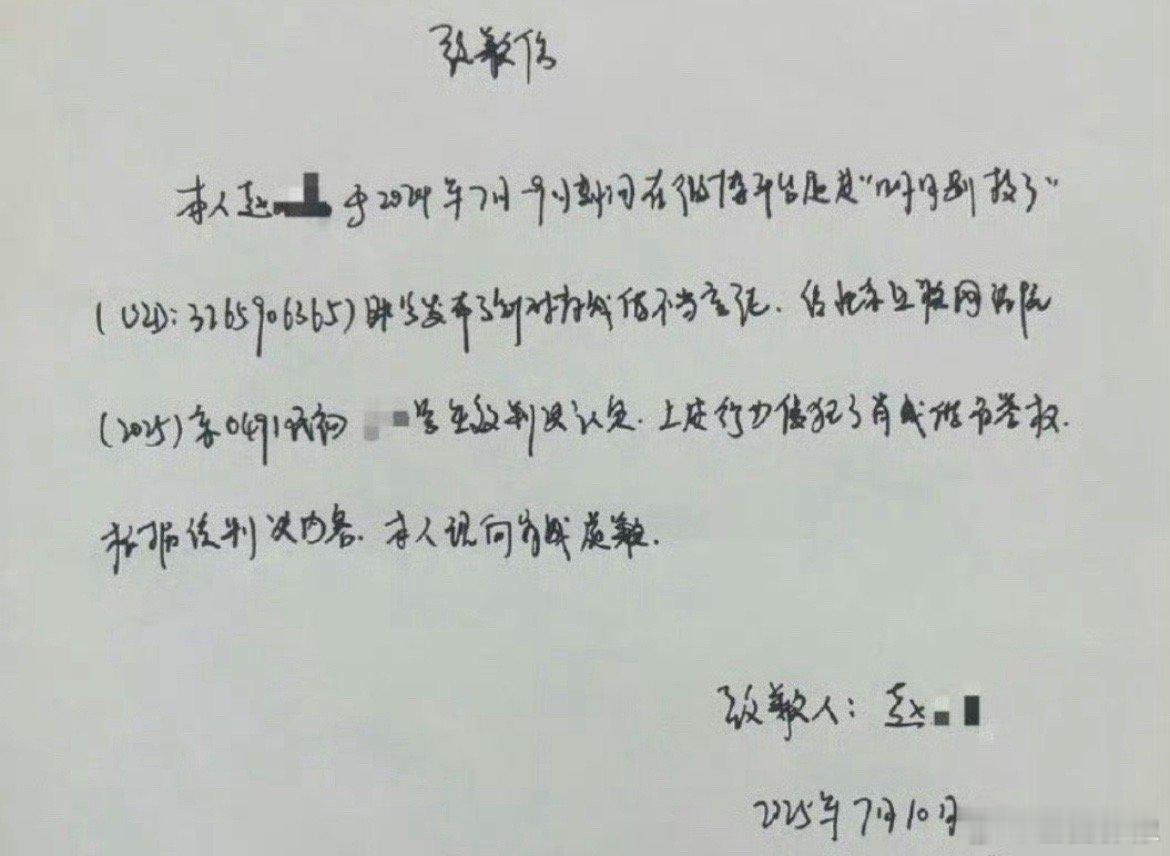 致歉信
本人赵 于2024年7月 期间在微博平台通过“ 月别 了”
(UID:3265906365)账号发布了针对肖战的不当言论.经北京互联网法院
(2025)京0491民初 号生效判决认定.上述行为侵犯了肖战的名誉权.
根据该判决内容.本人现向肖战致歉.
致歉人:赵
2025年7月10日